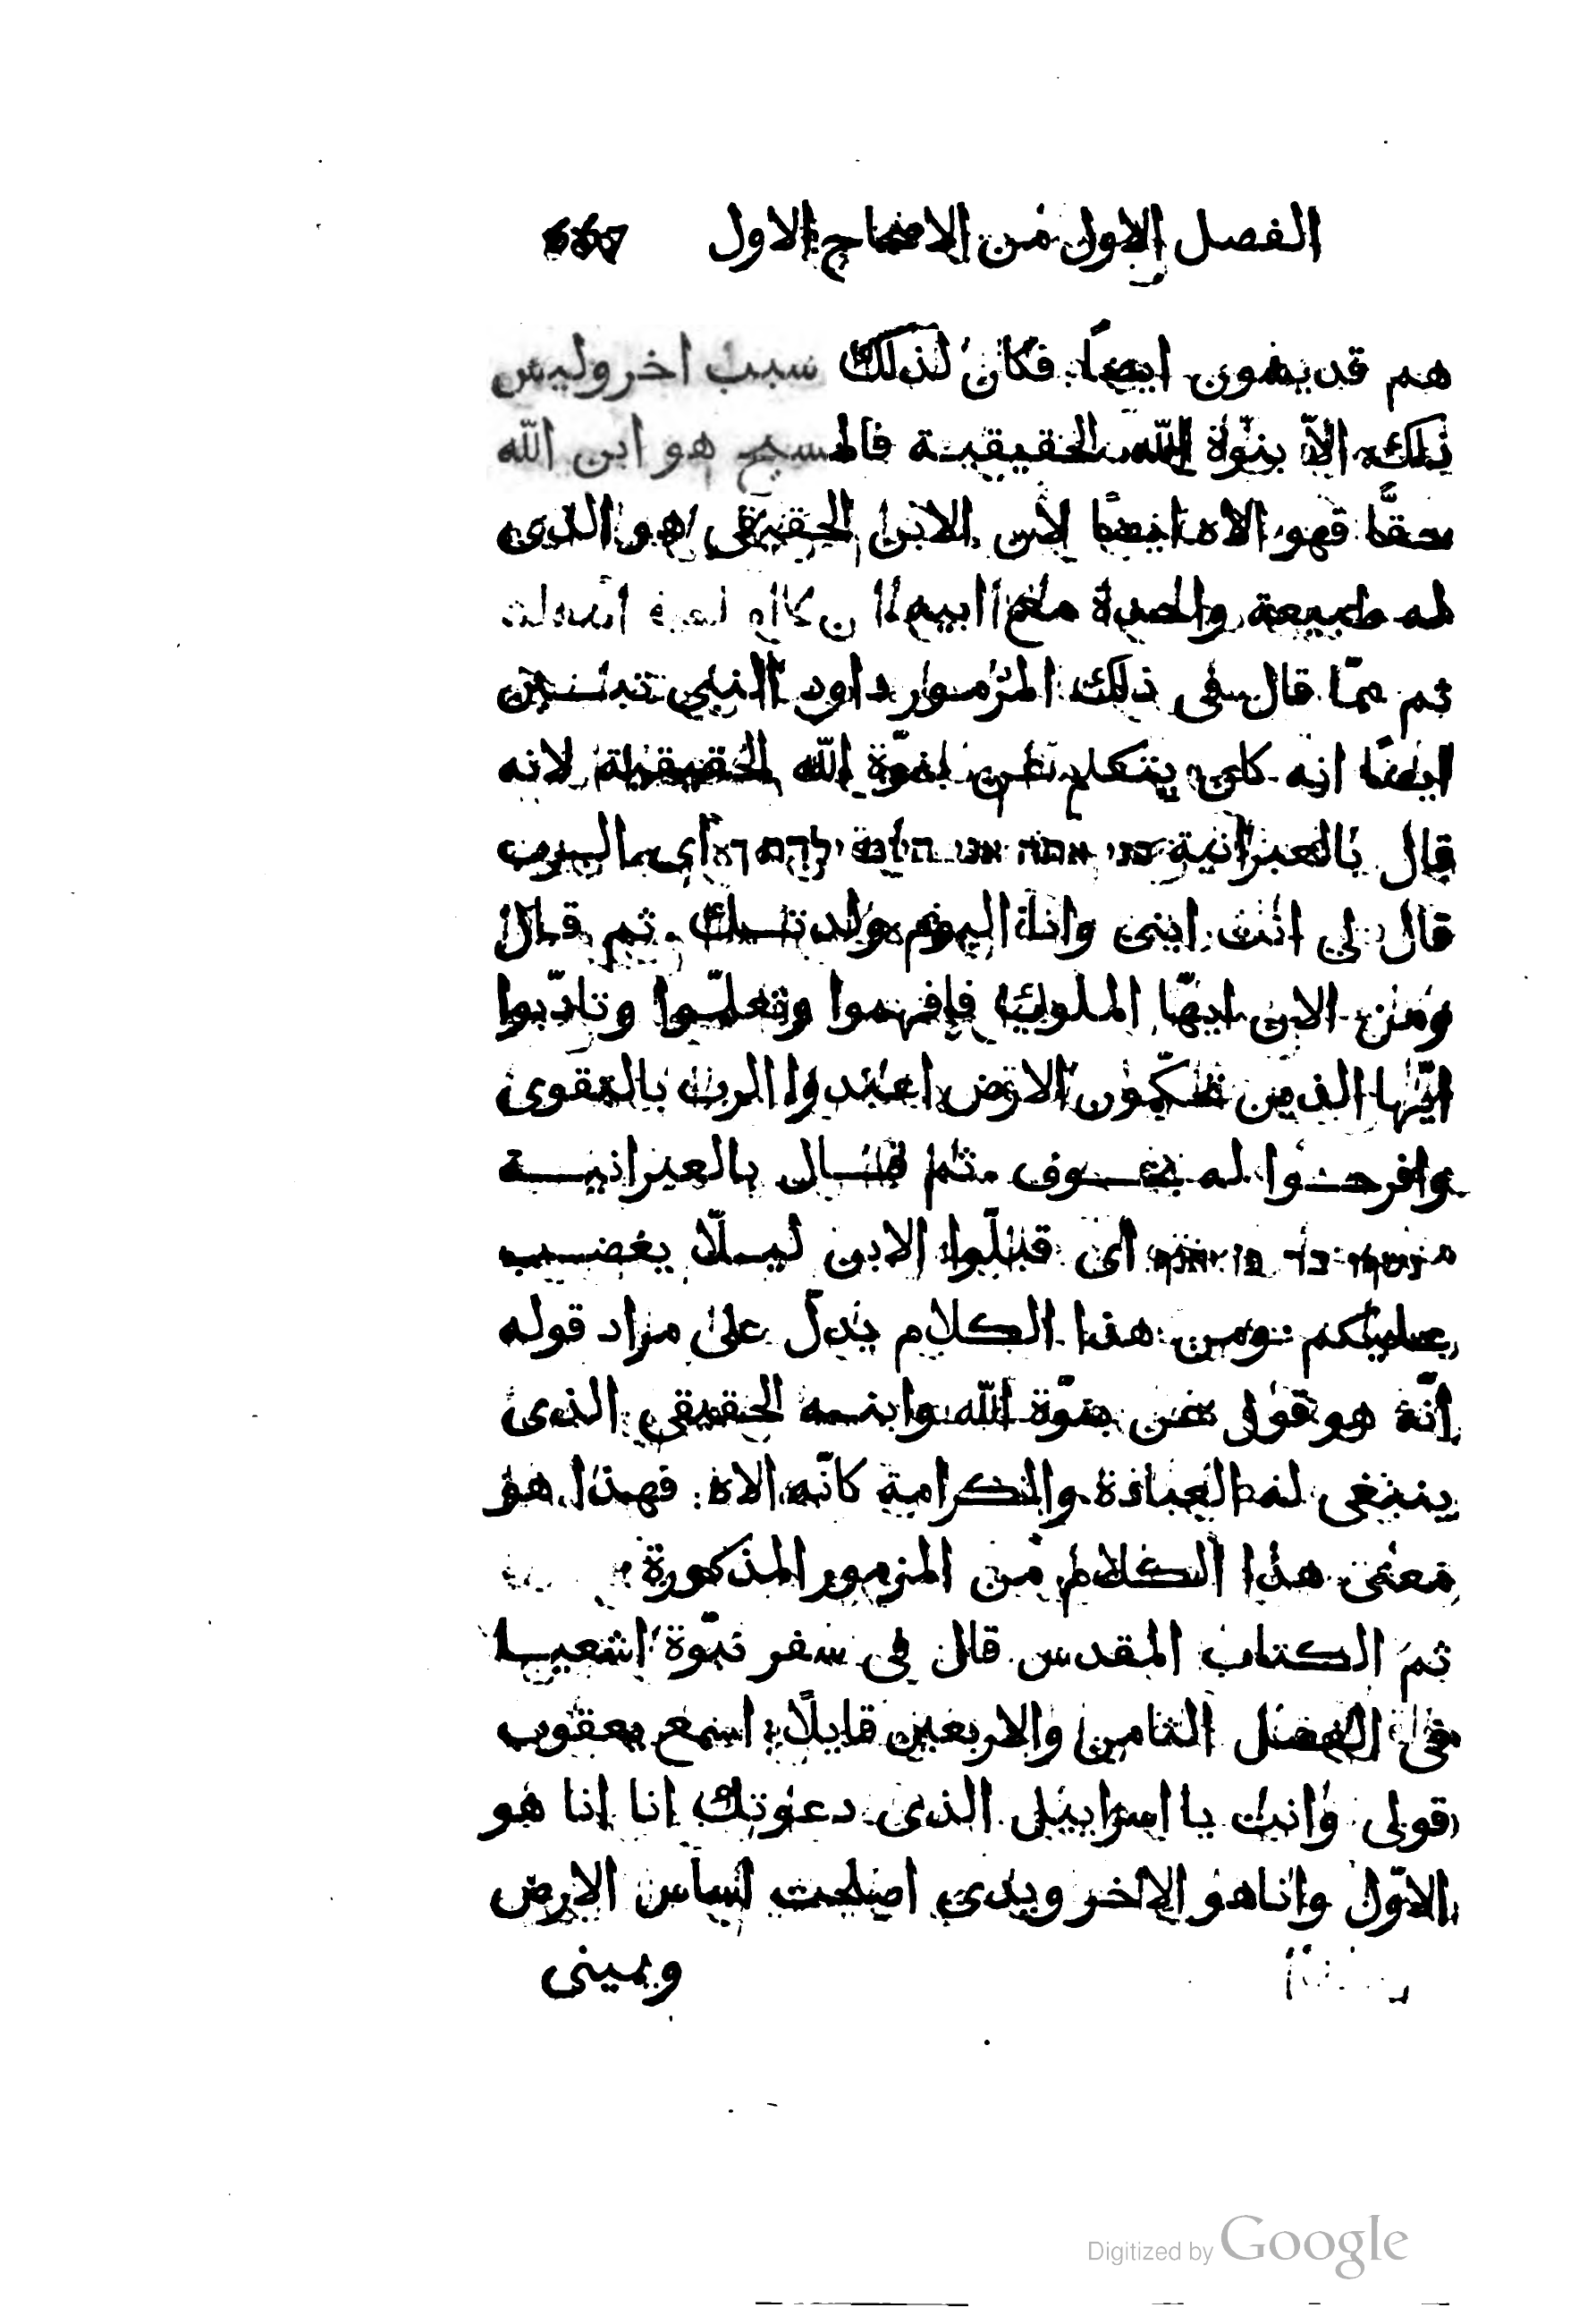 الفصل الاول من الاصحاح الاول 667
هم قديسون ايضًا فكان لذلك سبب اخر وليس
ذلك الاّ بنوّة اللّه الحقيقية فالمسيح هو ابن اللّه
حقًّا فهو الاه ايضًا لان الابن الحقيقى هو الذى
له طبيعة واحدة مع ابيه
ثم ممّا قال فى ذلك المزمور داود النبى تبين
ايضًا انه كان يتكلم عن بنوّة اللّه الحقيقية لانه
قال بالعبرانية בני אתה אני היום ילדתיך اى الرب
قال لى انت ابنى وانا اليوم ولدتك ثم قال
ومن الان ايّها الملوك فافهموا وتعلّموا وتادّبوا
ايّها الذين تحكمون الارض اعبدوا الرب بالتقوى
وافرحوا له بخوف ثم قال بالعبرانية
נשקו בר פן יאנף اى قبّلوا الابن ليلّا يغضب
عليكم ومن هذا الكلام يدلّ على مراد قوله
انّه هو قول عن بنوّة اللّه وابنه الحقيقى الذى
ينبغى له العبادة والكرامة كانّه الاه فهذا هو
معنى هذا الكلام من المزمور المذكورة
ثم الكتاب المقدس قال فى سفر نبّوة اشعيا
فى الفصل الثامن والاربعين قايلًا اسمع يعقوب
قولى وانت يا اسراييل الذى دعوتك انا انا هو
الاوّل وانا هو الاخر ويدى اصلحت اساس الارض
ويمينى
Digitized by Google